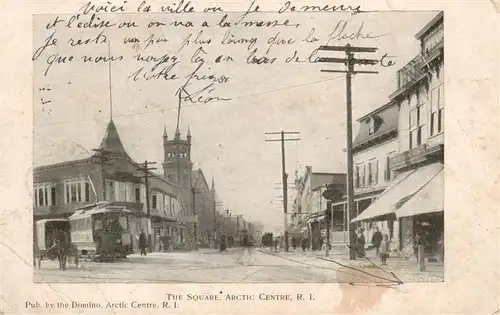 Voici la ville ou je demeure
et l'eclise ou on va a la messe.
Je reste un peu plus loung que la flèche
que nous voyez la en bas de la
Votre frère
THE SQUARE, ARCTIC CENTRE, R. I.
Pub. by the Domino, Arctic Centre, R. I.